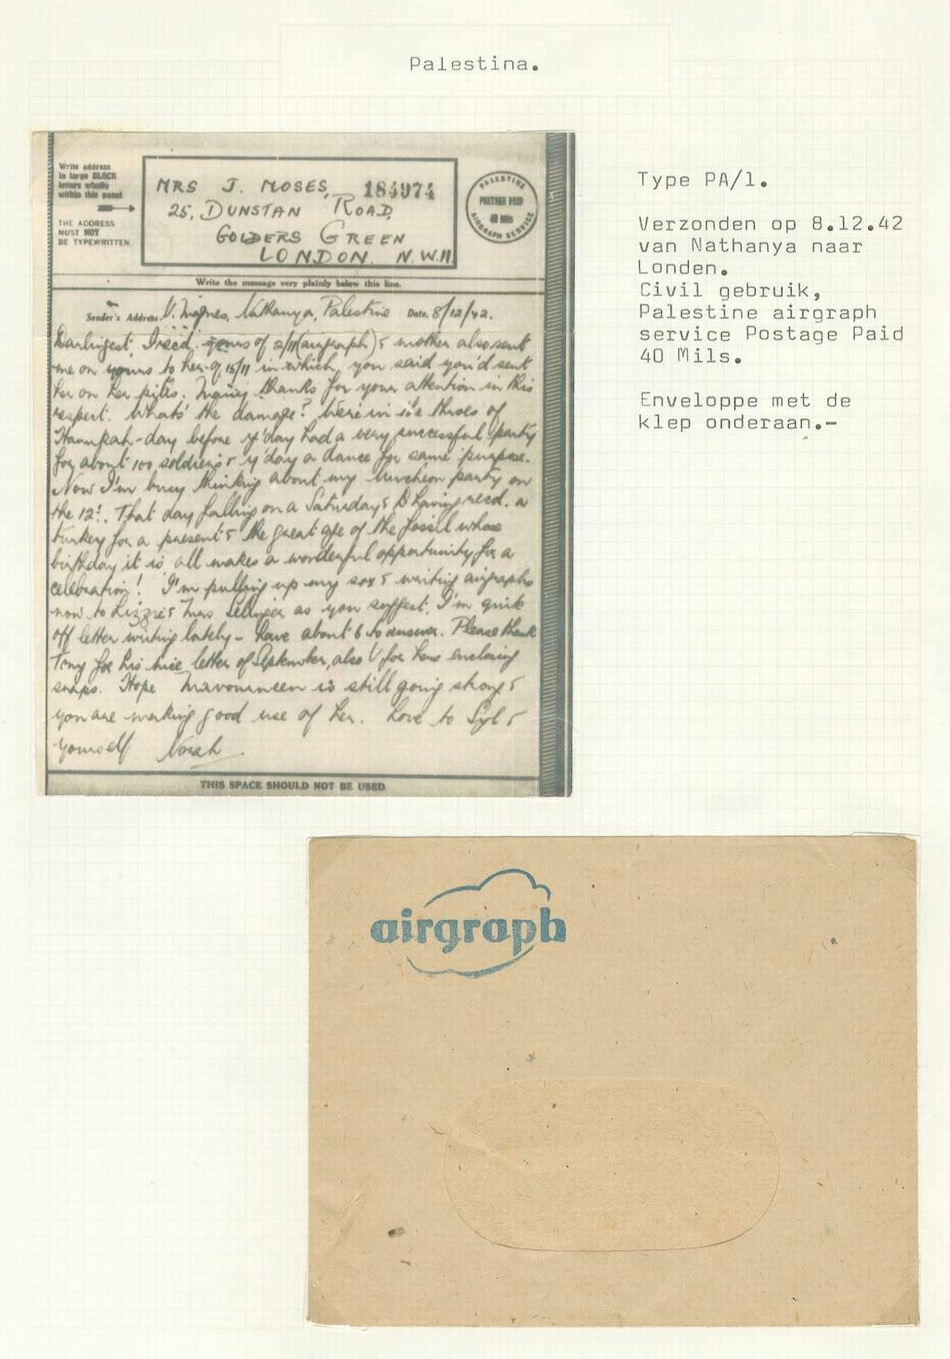 Palestina.
Write address
in large BLOCK
letters wholly
within this panel
THE ADDRESS
MUST NOT
BE TYPEWRITTEN.
MRS J. MOSES, 184974
25, DUNSTAN ROAD,
GOLDERS GREEN
LONDON. N.W.11
PALESTINE
POSTAGE PAID
40 Mils
AIRGRAPH SERVICE
Write the message very plainly below this line.
Sender's Address Nathanya, Palestine Date. 8/12/42.
Darlingest, I recd. yours of 2/11 (airgraph) & mother also sent
me on yours to her of 15/11 in which you said you'd sent
her on her gifts. Many thanks for your attention in this
respect. What's the damage? We're in the throes of
Hanukah - day before y'day had a very successful party
for about 100 soldiers & y'day a dance for same purpose.
Now I'm busy thinking about my luncheon party on
the 12th. That day falling on a Saturday & D having recd. a
turkey for a present & the great age of the fossil whose
birthday it is, all makes a wonderful opportunity for a
celebration! I'm pulling up my sox & writing airgraphs
now to Lizzie & Mrs as you suggest. I'm quite
off letter writing lately - have about 6 to answer. Please thank
Tony for his nice letter of September, also V for hers enclosing
snaps. Hope Mavourneen is still going strong &
you are making good use of her. Love to Syl &
yourself Norah.
THIS SPACE SHOULD NOT BE USED.
Type PA/1.
Verzonden op 8.12.42
van Nathanya naar
Londen.
Civil gebruik,
Palestine airgraph
service Postage Paid
40 Mils.
Enveloppe met de
klep onderaan.-
airgraph